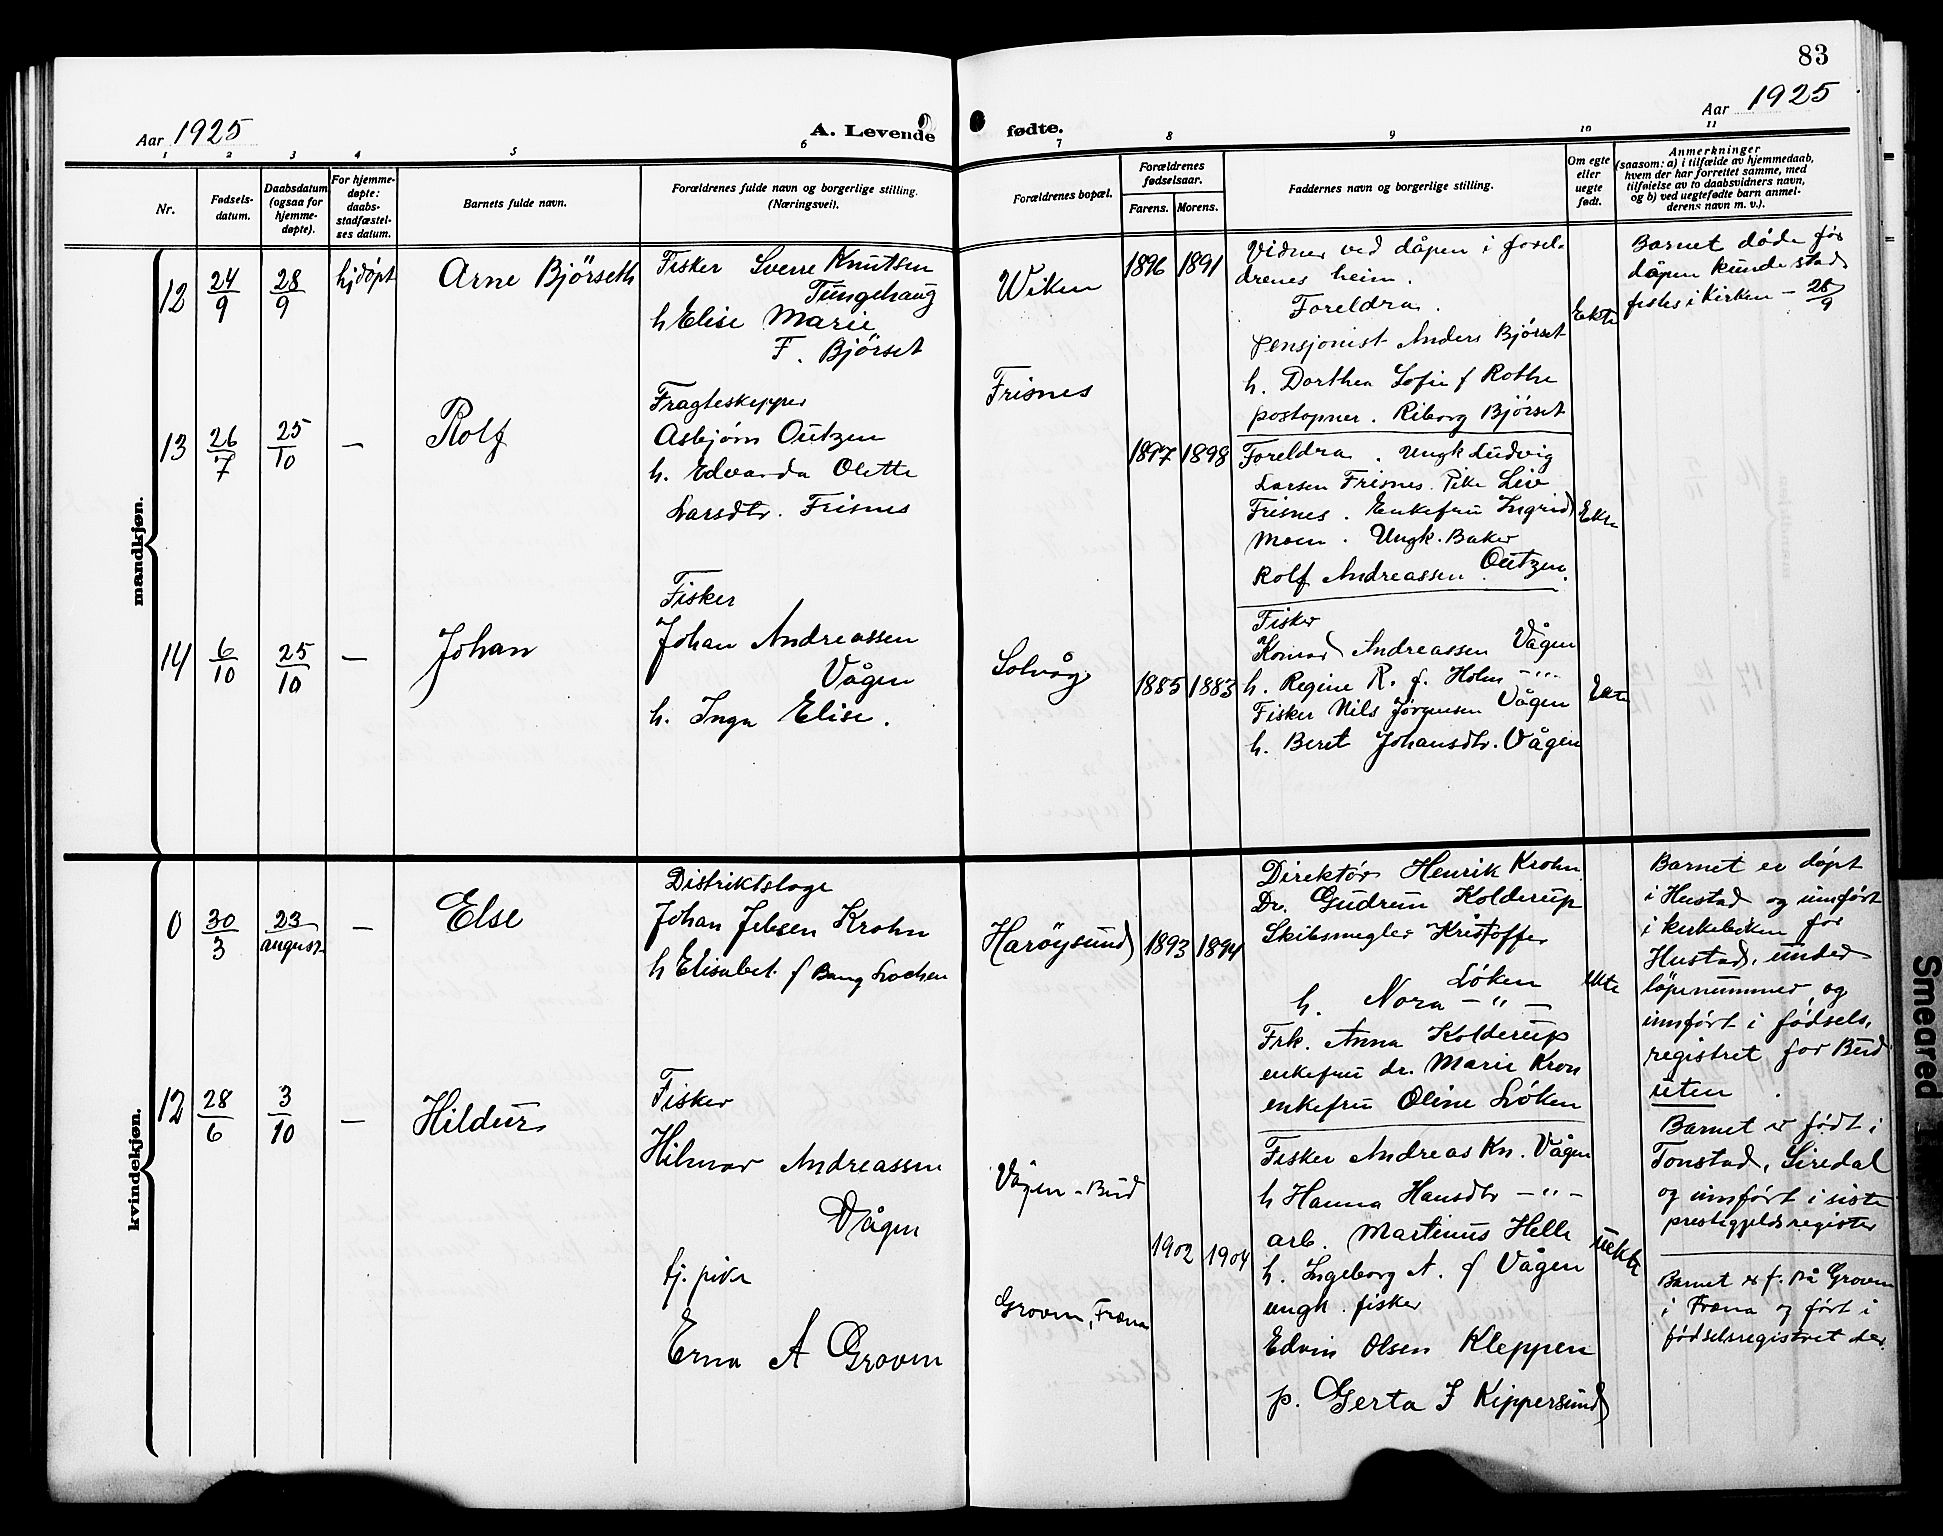 83
Aar 1925
A. Levende
fødte.
Aar 1925
1 2 3 4 5 6 7 8 9 10 11
Nr.
Fødsels-
datum.
Daabsdatum
(ogsaa for
hjemme-
døpte).
For hjemme-
døpte:
daabs-
stadfæstel-
ses datum.
Barnets fulde navn.
Forældrenes fulde navn og borgerlige stilling.
(Næringsvei).
Forældrenes bopæl.
Forældrenes
fødselsaar.
Farens. Morens.
Faddernes navn og borgerlige stilling.
Om egte
eller
uegte
født.
Anmerkninger
(saasom: a) i tilfælde av hjemmedaab,
hvem der har forrettet samme, med
tilføielse av to daabsvidners navn,
og b) ved uegtefødte barn anmel-
derens navn m. v.).
mandkjøn.
12
24/9
28/9
hjdøpt
Arne Bjørseth
Fisker Sverre Knutsen
Tungehaug
h Elise Marie
F. Bjørset
Wiken
1896 1891
Vidner ved dåpen i forel-
drenes heim.
Foreldra.
Pensjonist Anders Bjørset
h. Dorthea Sofie f Rothe
postopner. Riborg Bjørset
Ekte
Barnet døde før
dåpen kunde stad-
festes i Kirken - 28/9
13
26/7
25/10
—
Rolf
Fragteskepper
Asbjørn Outzen
h. Edvarda Olette
Larsdtr. Frisnes
Frisnes
1897 1898
Foreldra. Ungk Ludvig
Larsen Frisnes. Pike Liv
Frisnes. Enkefru Ingrid
Moen. Ungk. Baker
Rolf Andreassen Outzen.
Ekte
14
6/10
25/10
—
Johan
Fisker
Johan Andreassen
Vågen
h. Inga Elise.
Solvåg
1885 1883
Fisker
Konrad Andreassen Vågen
h. Regine R. f. Holm -"-
Fisker Nils Jørgensen Vågen
h. Beret Johansdtr. Vågen
Ekte
kvindekjøn.
0
30/3
23
august
—
Else
Distriktslæge
Johan Jebsen Krohn
h Elisabet f Bang Lochen
Harøysund
1893 1894
Direktør Henrik Krohn
Dr. Gudrun Kolderup
Skibsmegler Kristoffer
Løken
h. Nora -"-
Frk. Anna Kolderup
enkefru dr. Marie Kron
enkefru Oline Løken
ekte
Barnet er døpt
i Hustad og innført
i kirkeboken for
Hustad, under
løpenummer, og
innført i fødsels.
registret for Bud
uten.
12
28/6
3/10
—
Hildur
Fisker
Hilmar Andreassen
Vågen
tj. pike
Erna A Groven
Vågen - Bud
Groven, Fræna
1902 1904
Fisker Andreas Kn. Vågen
h Hanna Hansdtr -"-
arb. Martinus Helle
h. Ingeborg A. f Vågen
ungk. fisker
Edvin Olsen Kleppen
p. Gerta J Kippersund
uekte
Barnet er født i
Tonstad, Siredal
og innført i siste
prestigjelds register
Barnet er f. på Groven
i Fræna og ført i
fødselsregistret der.
Smeared